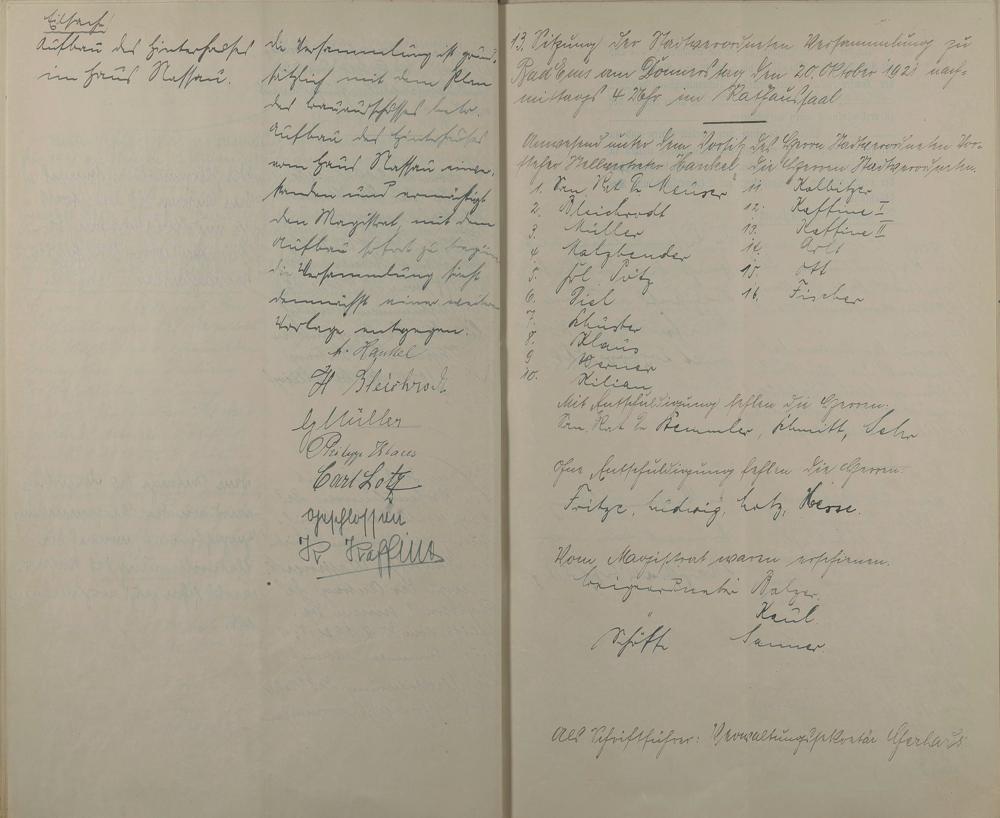 Eilsache!
Aufbau des Hinterhauses
im Haus Nassau.
die Versammlung ist grund-
sätzlich mit dem Plan
des Bauausschusses betr.
Aufbau des Hinterhauses
vom Haus Nassau einver-
standen und ermächtigt
den Magistrat, mit dem
Aufbau sofort zu beginnen
die Versammlung sieht
demnächst einer weiteren
Vorlage entgegen.
A. Hankel
H Bleichrodt
G Müller
Philipp Klaus
Carl Lotz
Geschlossen
K Kaffine
13. Sitzung der Stadtverordneten Versammlung zu
Bad Ems am Donnerstag den 20. Oktober 1921 nach-
mittags 4 Uhr im Rathaussaal
Anwesend unter dem Vorsitz des Herrn Stadtverordneten Vor-
steher Stellvertreter Hankel, die Herren Stadtverordneten.
1. San. Rat Dr Meuser
2. Bleichrodt
3. Müller
4. Malzbender
5. Frl.
6. Diel
7. Schuster
8. Klaus
9 Werner
10. Kilian
11. Kalbitzer
12. Kaffine I
13. Kaffine II
14. Arlt
15. Ott
16. Fischer
Mit Entschuldigung fehlen die Herren.
San. Rat Dr Stemmler, Schmitt,
Ohne Entschuldigung fehlen die Herren:
Fritze, Ludwig, Lotz, Hesse.
Vom Magistrat waren erschienen.
Beigeordneter Balzer.
" Kaul
Schöffe Sanner
Als Schriftführer: Verwaltungssekretär Gerhards